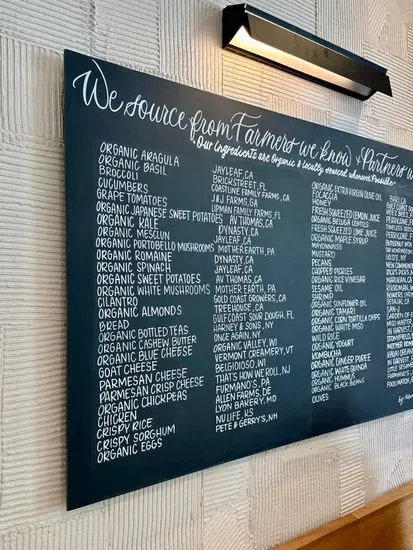 We source from Farmers we know + Partners w
Our ingredients are Organic & locally sourced whenever Possible!
ORGANIC ARUGULA JAYLEAF, CA
ORGANIC BASIL BRICKSTREET, FL
BROCCOLI COASTLINE FAMILY FARMS, CA
CUCUMBERS J&J FARMS, GA
GRAPE TOMATOES LIPMAN FAMILY FARMS, FL
ORGANIC JAPANESE SWEET POTATOES AV THOMAS, CA
ORGANIC KALE DYNASTY, CA
ORGANIC MESCLUN JAYLEAF, CA
ORGANIC PORTOBELLO MUSHROOMS MOTHER EARTH, PA
ORGANIC ROMAINE DYNASTY, CA
ORGANIC SPINACH JAYLEAF, CA
ORGANIC SWEET POTATOES AV THOMAS, CA
ORGANIC WHITE MUSHROOMS MOTHER EARTH, PA
CILANTRO GOLD COAST GROWERS, CA
ORGANIC ALMONDS TREEHOUSE, CA
BREAD GULF COAST SOUR DOUGH, FL
ORGANIC BOTTLED TEAS HARNEY & SONS, NY
ORGANIC CASHEW BUTTER ONCE AGAIN, NY
ORGANIC BLUE CHEESE ORGANIC VALLEY, WI
GOAT CHEESE VERMONT CREAMERY, VT
PARMESAN CHEESE BELGIOIOSO, WI
PARMESAN CRISP CHEESE THAT'S HOW WE ROLL, NJ
ORGANIC CHICKPEAS FURMANO'S, PA
CHICKEN ALLEN FARMS, DE
CRISPY RICE LYON BAKERY, MD
CRISPY SORGHUM NU LIFE, KS
ORGANIC EGGS PETE & GERRY'S, NH
ORGANIC EXTRA VIRGIN OLIVE OIL
FOCACCIA
HONEY
FRESH SQUEEZED LEMON JUICE
ORGANIC BELUGA LENTILS
FRESH SQUEEZED LIME JUICE
ORGANIC MAPLE SYRUP
MAYONNAISE
MUSTARD
PECANS
CHOPPED PICKLES
ORGANIC RICE VINEGAR
SESAME OIL
SHRIMP
ORGANIC SUNFLOWER OIL
ORGANIC TAMARI
ORGANIC CORN TORTILLA CHIPS
ORGANIC WHITE MISO
WILD RICE
ORGANIC YOGURT
KOMBUCHA
ORGANIC GINGER PUREE
ORGANIC WHITE QUINOA
ORGANIC HUMMUS
ORGANIC BLACK BEANS
OLIVES